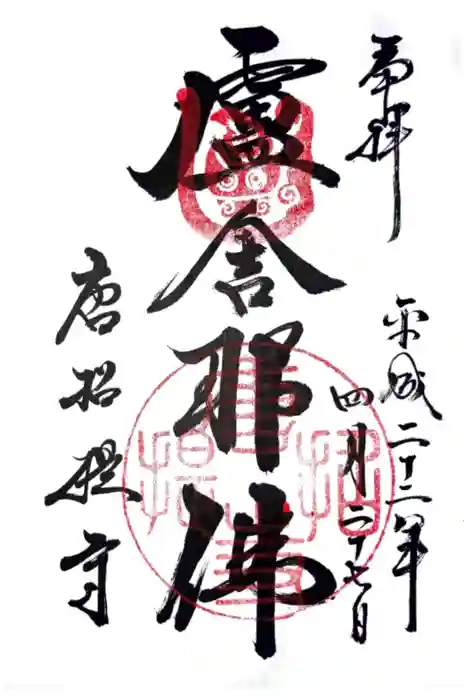 奉拝
平成二十二年
四月二十七日
盧舎那佛
唐招提寺
唐招提寺